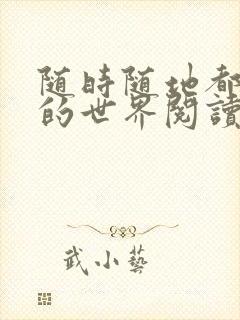 随時随地都
的世界閱讀
武小藝